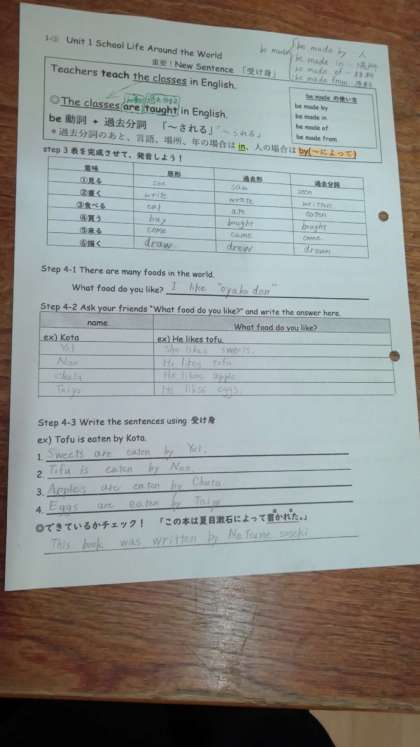 1-② Unit 1 School Life Around the World
be made
be made by 人
be made in
be made of 材料
be made from 原料
重要！New Sentence 「受け身」
Teachers teach the classes in English.
◎The classes are taught in English.
be 動詞 + 過去分詞 「～される」「～される」
＊過去分詞のあと、言語、場所、年の場合は in、人の場合は by(～によって)
be made の使い方
be made by
be made in
be made of
be made from
step 3 表を完成させて、発音しよう！
意味 原形 過去形 過去分詞
①見る see saw seen
②書く write wrote written
③食べる eat ate eaten
④買う buy bought bought
⑤来る come came come
⑥描く draw drew drawn
Step 4-1 There are many foods in the world.
What food do you like? I like "oyako don"
Step 4-2 Ask your friends "What food do you like?" and write the answer here.
name What food do you like?
ex) Kota ex) He likes tofu.
Yui She likes sweets.
Nao He likes tofu
Chuta He likes apple
Taiyo He likes eggs.
Step 4-3 Write the sentences using 受け身
ex) Tofu is eaten by Kota.
1. Sweets are eaten by Yui.
2. Tofu is eaten by Nao.
3. Apples are eaten by Chuta.
4. Eggs are eaten by Taiyo
◎できているかチェック！ 「この本は夏目漱石によって書かれた。」
This book was written by Natsume soseki.